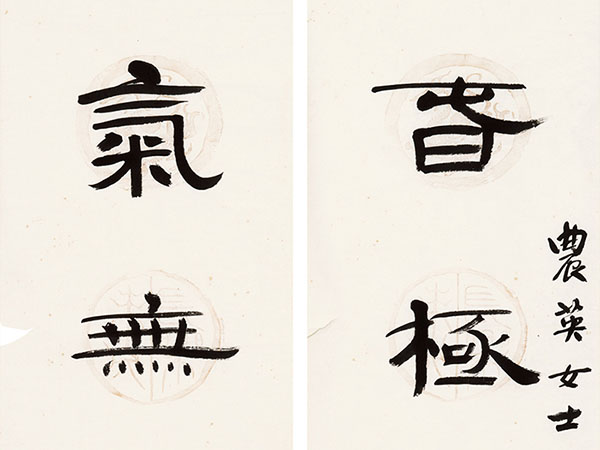 農英女士
極
氣無